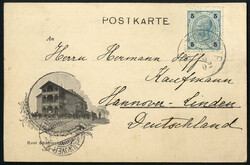 POSTKARTE
An
5 5
Herrn Hermann Hoff
Kaufmann
Hannover-Linden
Deutschland